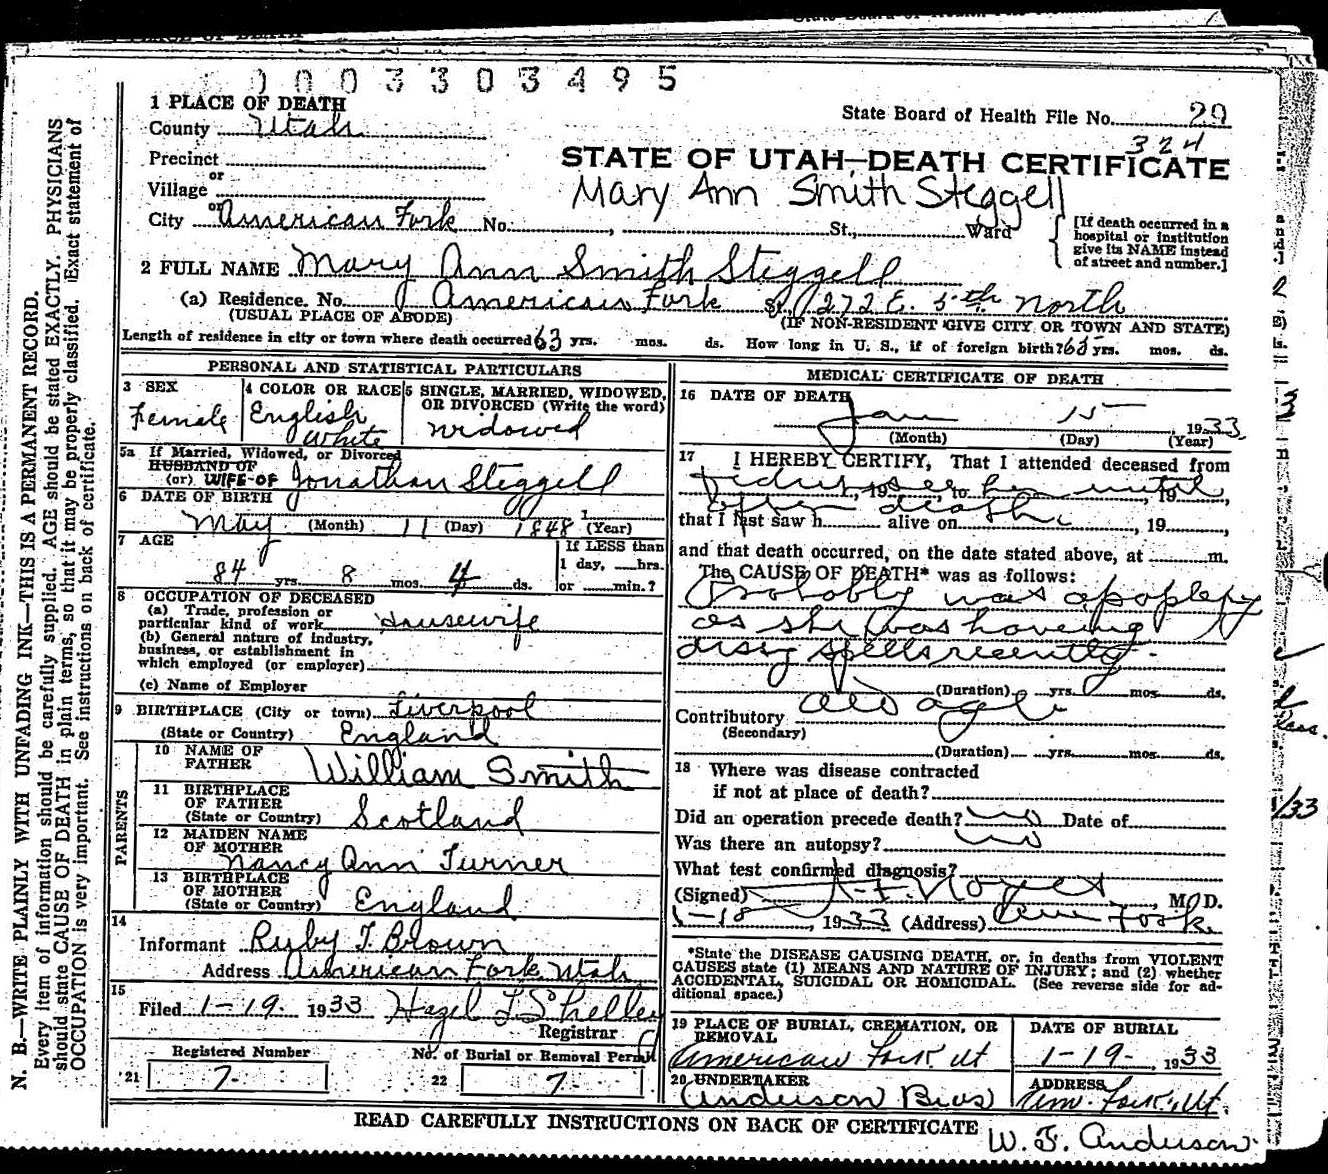 0003303495
1 PLACE OF DEATH
State Board of Health File No. 29
County Utah
324
Precinct
STATE OF UTAH—DEATH CERTIFICATE
or
Village
Mary Ann Smith Steggell
or
City American Fork No. , St., Ward
[If death occurred in a hospital or institution give its NAME instead of street and number.]
2 FULL NAME Mary Ann Smith Steggell
(a) Residence. No. American Fork St. 272 E. 5th North
(USUAL PLACE OF ABODE) (IF NON-RESIDENT GIVE CITY OR TOWN AND STATE)
Length of residence in city or town where death occurred 63 yrs. mos. ds. How long in U. S., if of foreign birth? 65 yrs. mos. ds.
PERSONAL AND STATISTICAL PARTICULARS
3 SEX
Female
4 COLOR OR RACE
English
White
5 SINGLE, MARRIED, WIDOWED, OR DIVORCED (Write the word)
Widowed
5a If Married, Widowed, or Divorced
HUSBAND OF
(or) WIFE OF Jonathan Steggell
6 DATE OF BIRTH
May (Month) 11 (Day) 1848 (Year)
7 AGE
84 yrs. 8 mos. 4 ds.
If LESS than
1 day, hrs.
or min.?
8 OCCUPATION OF DECEASED
(a) Trade, profession or
particular kind of work Housewife
(b) General nature of industry,
business, or establishment in
which employed (or employer)
(c) Name of Employer
9 BIRTHPLACE (City or town) Liverpool
(State or Country) England
PARENTS
10 NAME OF
FATHER William Smith
11 BIRTHPLACE
OF FATHER
(State or Country) Scotland
12 MAIDEN NAME
OF MOTHER
Nancy Ann Turner
13 BIRTHPLACE
OF MOTHER
(State or Country) England
14
Informant Ruby T. Brown
Address American Fork Utah
15
Filed 1-19- 1933 Hazel L Shelley
Registrar
Registered Number
21 7
No. of Burial or Removal Permit
22 7
MEDICAL CERTIFICATE OF DEATH
16 DATE OF DEATH
Jan 15 1933
(Month) (Day) (Year)
17 I HEREBY CERTIFY, That I attended deceased from
I did not see her until , 19 , to , 19 ,
after death
that I last saw h alive on , 19 ,
and that death occurred, on the date stated above, at m.
The CAUSE OF DEATH* was as follows:
Probably was apoplexy
as she was having
dizzy spells recently.
(Duration) yrs. mos. ds.
Contributory old age
(Secondary)
(Duration) yrs. mos. ds.
18 Where was disease contracted
if not at place of death?
Did an operation precede death? no Date of
Was there an autopsy? no
What test confirmed diagnosis?
(Signed) M. D.
1-18 , 1933 (Address) Am Fork.
*State the DISEASE CAUSING DEATH, or, in deaths from VIOLENT
CAUSES state (1) MEANS AND NATURE OF INJURY; and (2) whether
ACCIDENTAL, SUICIDAL OR HOMICIDAL. (See reverse side for ad-
ditional space.)
19 PLACE OF BURIAL, CREMATION, OR
REMOVAL
American Fork Ut
DATE OF BURIAL
1-19-, 1933
20 UNDERTAKER
Anderson Bros
ADDRESS
Am. Fork, Ut.
READ CAREFULLY INSTRUCTIONS ON BACK OF CERTIFICATE
W. F. Anderson
N. B.—WRITE PLAINLY WITH UNFADING INK—THIS IS A PERMANENT RECORD.
Every item of information should be carefully supplied. AGE should be stated EXACTLY. PHYSICIANS
should state CAUSE OF DEATH in plain terms, so that it may be properly classified. Exact statement of
OCCUPATION is very important. See instructions on back of certificate.